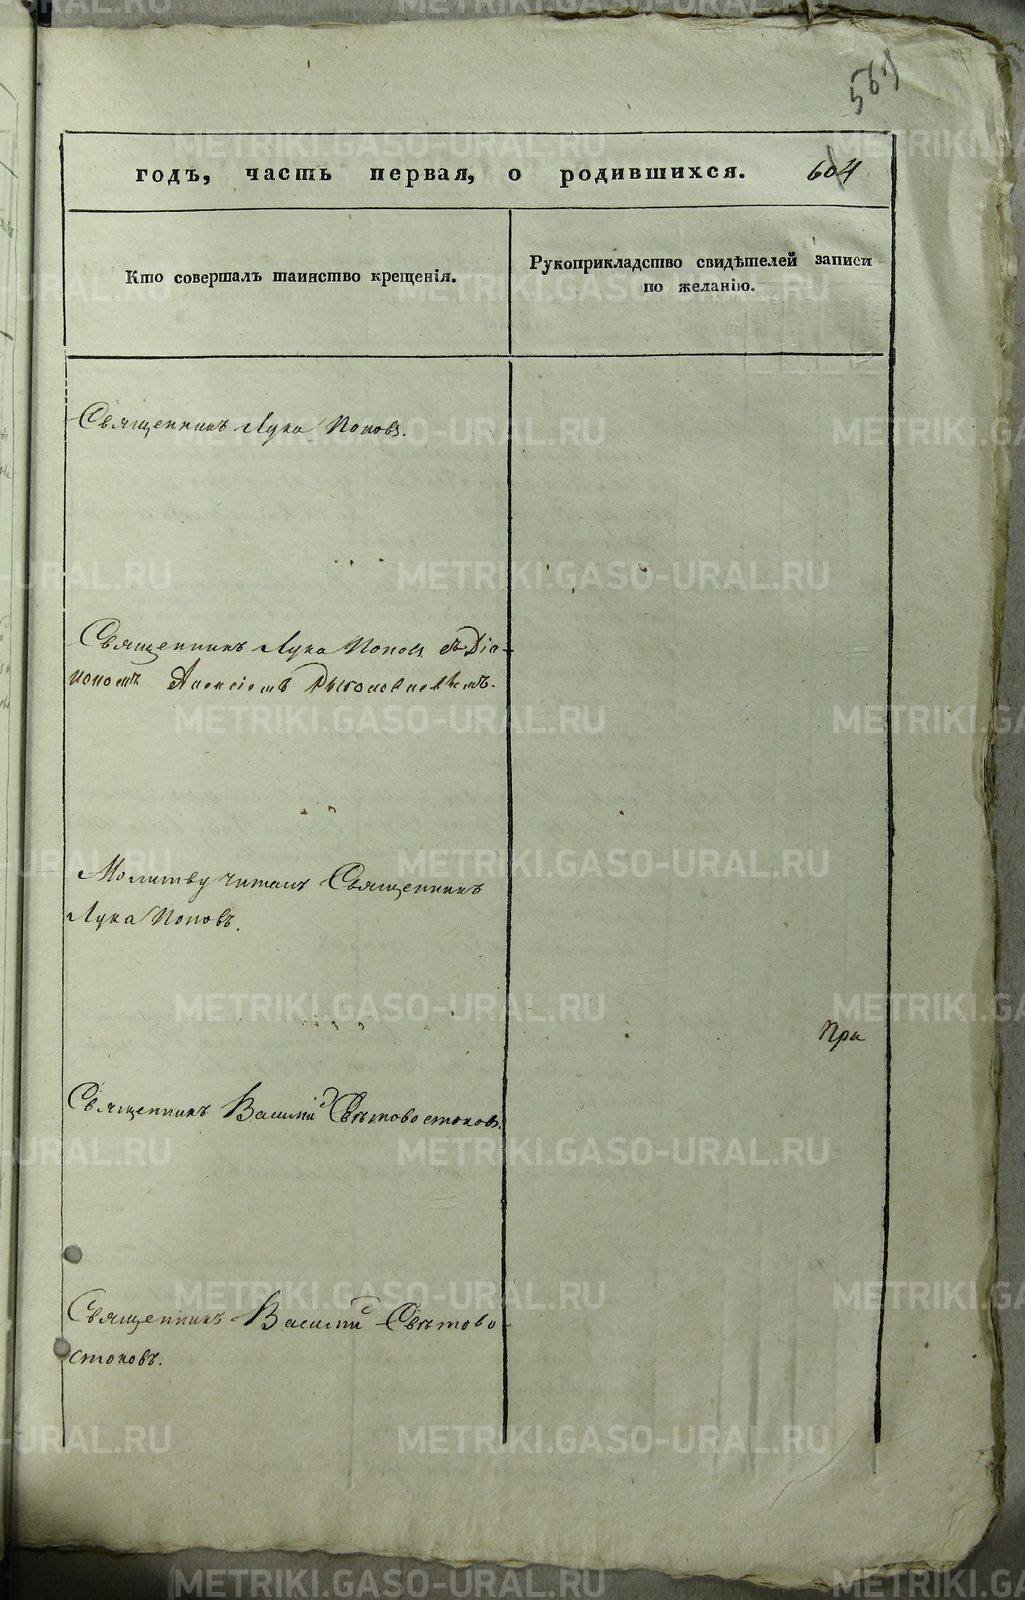 569
годъ, часть первая, о родившихся. 604
Кто совершалъ таинство крещенія.
Рукоприкладство свидѣтелей записи
по желанію.
Священникъ Лука Поповъ.
Священникъ Лука Поповъ съ Діа-
кономъ Алексіемъ
Молитву читалъ Священникъ
Лука Поповъ.
При
Священникъ Василий Свѣтовостоковъ.
Священникъ Василий Свѣтово-
стоковъ.
METRIKI.GASO-URAL.RU